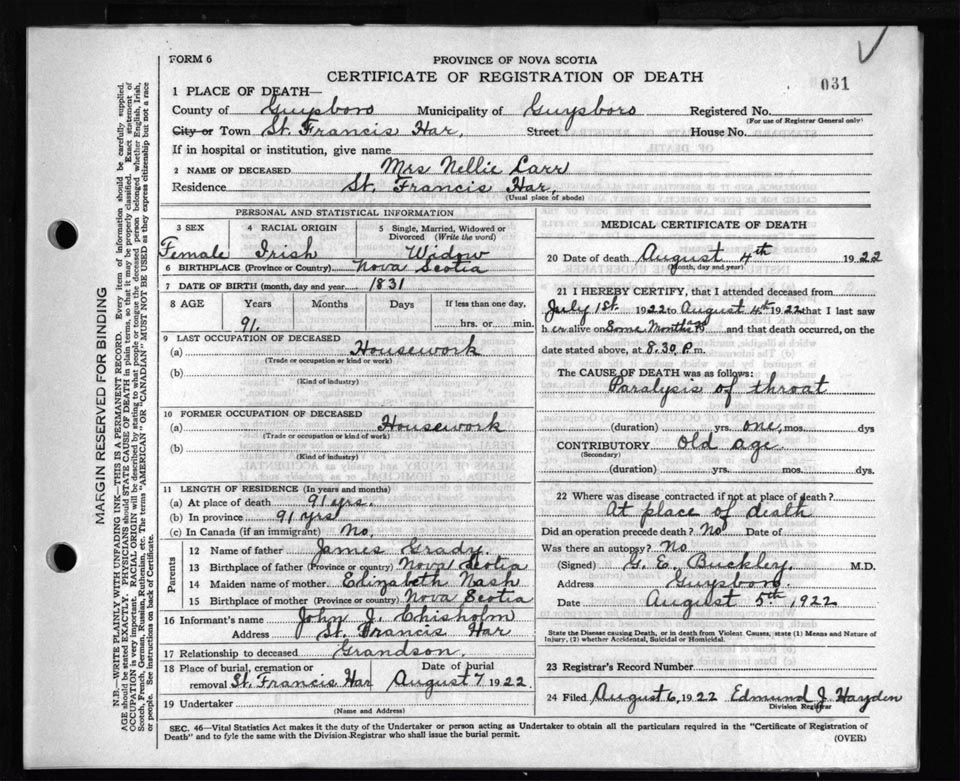 FORM 6
PROVINCE OF NOVA SCOTIA
CERTIFICATE OF REGISTRATION OF DEATH
031
1 PLACE OF DEATH—
County of Guysboro Municipality of Guysboro Registered No.
(For use of Registrar General only)
City or Town St. Francis Har, Street House No.
If in hospital or institution, give name
2 NAME OF DECEASED Mrs Nellie Carr
Residence St. Francis Har,
(Usual place of abode)
PERSONAL AND STATISTICAL INFORMATION
3 SEX 4 RACIAL ORIGIN 5 Single, Married, Widowed or Divorced (Write the word)
Female Irish Widow
6 BIRTHPLACE (Province or Country) Nova Scotia
7 DATE OF BIRTH (month, day and year) 1831
8 AGE Years Months Days If less than one day,
91. hrs. or min.
9 LAST OCCUPATION OF DECEASED
(a) Housework
(Trade or occupation or kind of work)
(b)
(Kind of industry)
10 FORMER OCCUPATION OF DECEASED
(a) Housework
(Trade or occupation or kind of work)
(b)
(Kind of industry)
11 LENGTH OF RESIDENCE (In years and months)
(a) At place of death 91 yrs.
(b) In province 91 yrs
(c) In Canada (if an immigrant) No.
Parents
12 Name of father James Grady.
13 Birthplace of father (Province or country) Nova Scotia
14 Maiden name of mother Elizabeth Nash
15 Birthplace of mother (Province or country) Nova Scotia
16 Informant's name John J. Chisholm
Address St. Francis Har
17 Relationship to deceased Grandson.
18 Place of burial, cremation or removal St. Francis Har Date of burial August 7 1922.
19 Undertaker
(Name and Address)
MEDICAL CERTIFICATE OF DEATH
20 Date of death August 4th 1922
(Month, day and year)
21 I HEREBY CERTIFY, that I attended deceased from
July 1st. 1922 to August 4th 1922 that I last saw
h er alive on Some Months ago and that death occurred, on the
date stated above, at 8.30 P.m.
The CAUSE OF DEATH was as follows:
Paralysis of throat
(duration) yrs. one, mos. dys
CONTRIBUTORY old age
(Secondary)
(duration) yrs. mos. dys.
22 Where was disease contracted if not at place of death?
At place of death
Did an operation precede death? No Date of
Was there an autopsy? No
(Signed) G. E. Buckley M.D.
Address Guysboro.
Date August 5th, 1922
State the Disease causing Death, or in death from Violent Causes, state (1) Means and Nature of Injury, (2) whether Accidental, Suicidal or Homicidal.
23 Registrar's Record Number
24 Filed August 6, 1922 Edmund J. Hayden
Division Registrar
SEC. 46—Vital Statistics Act makes it the duty of the Undertaker or person acting as Undertaker to obtain all the particulars required in the "Certificate of Registration of
Death" and to fyle the same with the Division Registrar who shall issue the burial permit.
(OVER)
MARGIN RESERVED FOR BINDING
N.B.—WRITE PLAINLY WITH UNFADING INK—THIS IS A PERMANENT RECORD. Every item of information should be carefully supplied.
AGE should be stated EXACTLY. PHYSICIANS should STATE CAUSE OF DEATH in plain terms, so that it may be properly classified. Exact statement of
OCCUPATION is very important. RACIAL ORIGIN will be described by stating to what people or tongue the deceased person belonged whether English, Irish,
Scotch, French, German, Russian, Ruthenian, etc. The terms "AMERICAN" OR "CANADIAN" MUST NOT BE USED as they express citizenship but not a race
or people. See instructions on back of Certificate.